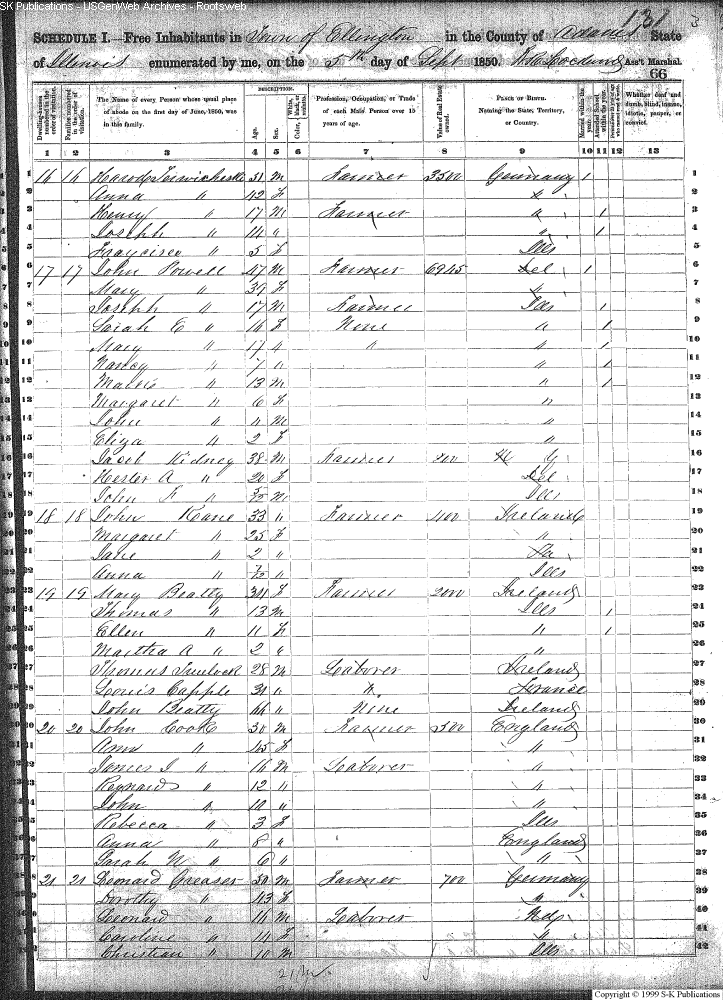 SK Publications - USGenWeb Archives - Rootsweb
131 3
SCHEDULE I.—Free Inhabitants in Town of Ellington in the County of Adams State
of Illinois enumerated by me, on the 5th day of Sept 1850. Ass't Marshal.
66
Dwelling-houses numbered in the order of visitation.
Families numbered in the order of visitation.
The Name of every Person whose usual place of abode on the first day of June, 1850, was in this family.
DESCRIPTION.
Age.
Sex.
Color, White, black, or mulatto.
Profession, Occupation, or Trade of each Male Person over 15 years of age.
Value of Real Estate owned.
PLACE OF BIRTH. Naming the State, Territory, or Country.
Married within the year.
Attended School within the year.
Whether deaf and dumb, blind, insane, idiotic, pauper, or convict.
1 2 3 4 5 6 7 8 9 10 11 12 13
1 16 16 51 M Farmer 3500 Germany 1 1
2 Anna " 42 F " 2
3 Henry " 17 M Farmer " 1 3
4 Joseph " 14 " " 1 4
5 " 5 F Ills 5
6 17 17 John Powell 47 M Farmer 6945 Del 1 6
7 Mary " 39 F " 7
8 Joseph " 17 M Farmer Ills 1 8
9 Sarah E " 16 F None " 1 9
10 Mary " " " 1 10
11 Nancy " 7 " " 1 11
12 " 13 M " 1 12
13 Margaret " 6 F " 13
14 John " 4 M " 14
15 Eliza " 2 F " 15
16 Jacob Kidney 38 M Farmer N Y 16
17 Hester A " 20 F Del 17
18 John " M Ills 18
19 18 18 John Kane 33 " Farmer 400 Ireland 19
20 Margaret " 25 F " 20
21 Jane " 2 " Pa 21
22 Anna " " Ills 22
23 19 19 Mary Beatty 34 F Farmer 2000 Ireland 23
24 Thomas " 13 M Ills 1 24
25 Ellen " 11 F " 1 25
26 Martha A " 2 " " 26
27 Thomas 28 M Laborer Ireland 27
28 Louis Capple 31 " " France 28
29 John Beatty " None Ireland 29
30 20 20 John Cook 50 M Farmer 500 England 30
31 Ann " 45 F " 31
32 James J " 16 M Laborer " 32
33 " 12 " " 33
34 John " 10 " " 34
35 Rebecca " 3 F Ills 35
36 Anna " 8 " England 36
37 Sarah N " 6 " " 37
38 21 21 Leonard Greaser 50 M Farmer 700 Germany 38
39 Dorothy " 43 F " 39
40 Leonard " 16 M Laborer 40
41 Caroline " 14 F " 41
42 Christian " 10 M Ills 42
Copyright © 1999 S-K Publications